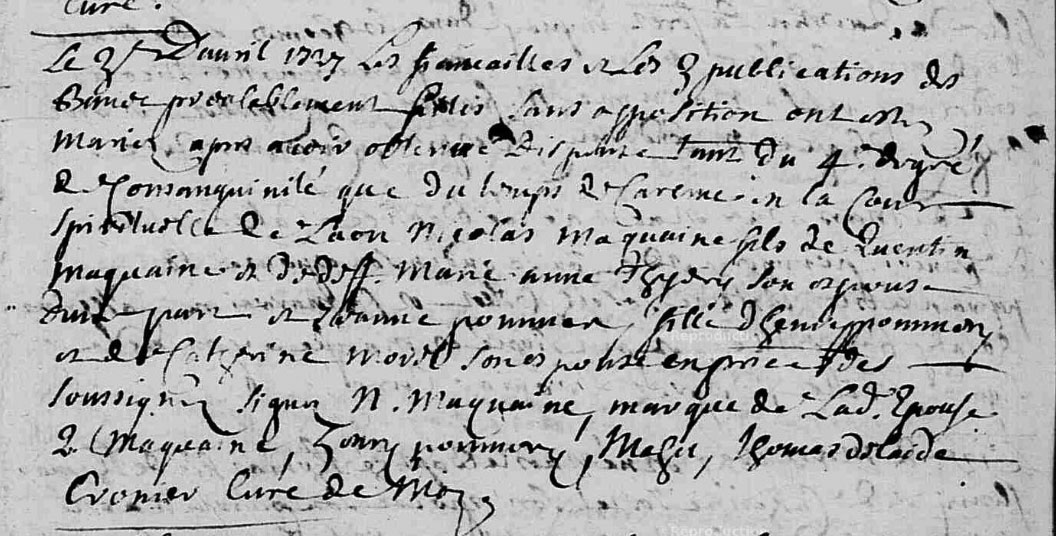 Cure.
Le d'avril 1727 Les fiancailles et Les 3 publications des
Bans preleblement faites sans opposition ont este
Mariez apres avoir obtenue dispense tant du 4.e degré
de Consanguinité que du temps de Careme en la Cour
spirituelle de Laon Nicolas Maquaine fils de Quentin
Maquaine et de deff. Marie anne son espouse
d'une part et Jeanne pommery fille d'henry pommery
et de Catherine Morel son espouse en presence des
soussignez signez N. Maquaine, marque de Lad. Epouse
Q Maquaine, henry pommery, Mahu, Thomas
Cronier Cure de